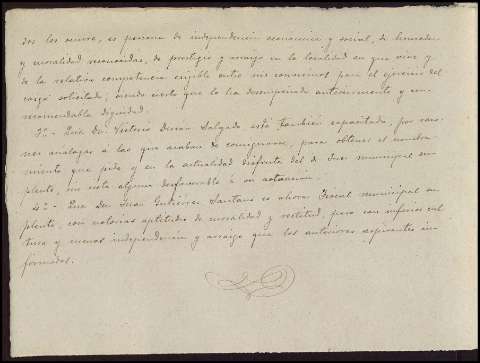 dos los suyos, es persona de independencia económica y social, de honradez
y moralidad reconocidas, de prestigio y arraigo en la localidad en que vive y
de la relativa competencia exigible entre sus convecinos para el ejercicio del
cargo solicitado; siendo cierto que lo ha desempeñado anteriormente y con
recomendable dignidad.
3º.- Que Dn. Victorio Durán Salgado está también capacitado, por razo-
nes análogas a las que acaban de consignarse, para obtener el nombra-
miento que pide y en la actualidad disfruta del de Juez municipal su-
plente, sin nota alguna desfavorable a su actuación.
4º.- Que Dn. Juan Gutiérrez Santano es ahora Fiscal municipal su-
plente, con notorias aptitudes de moralidad y rectitud, pero con inferior cul-
tura y menos independencia y arraigo que los anteriores aspirantes in-
formados.